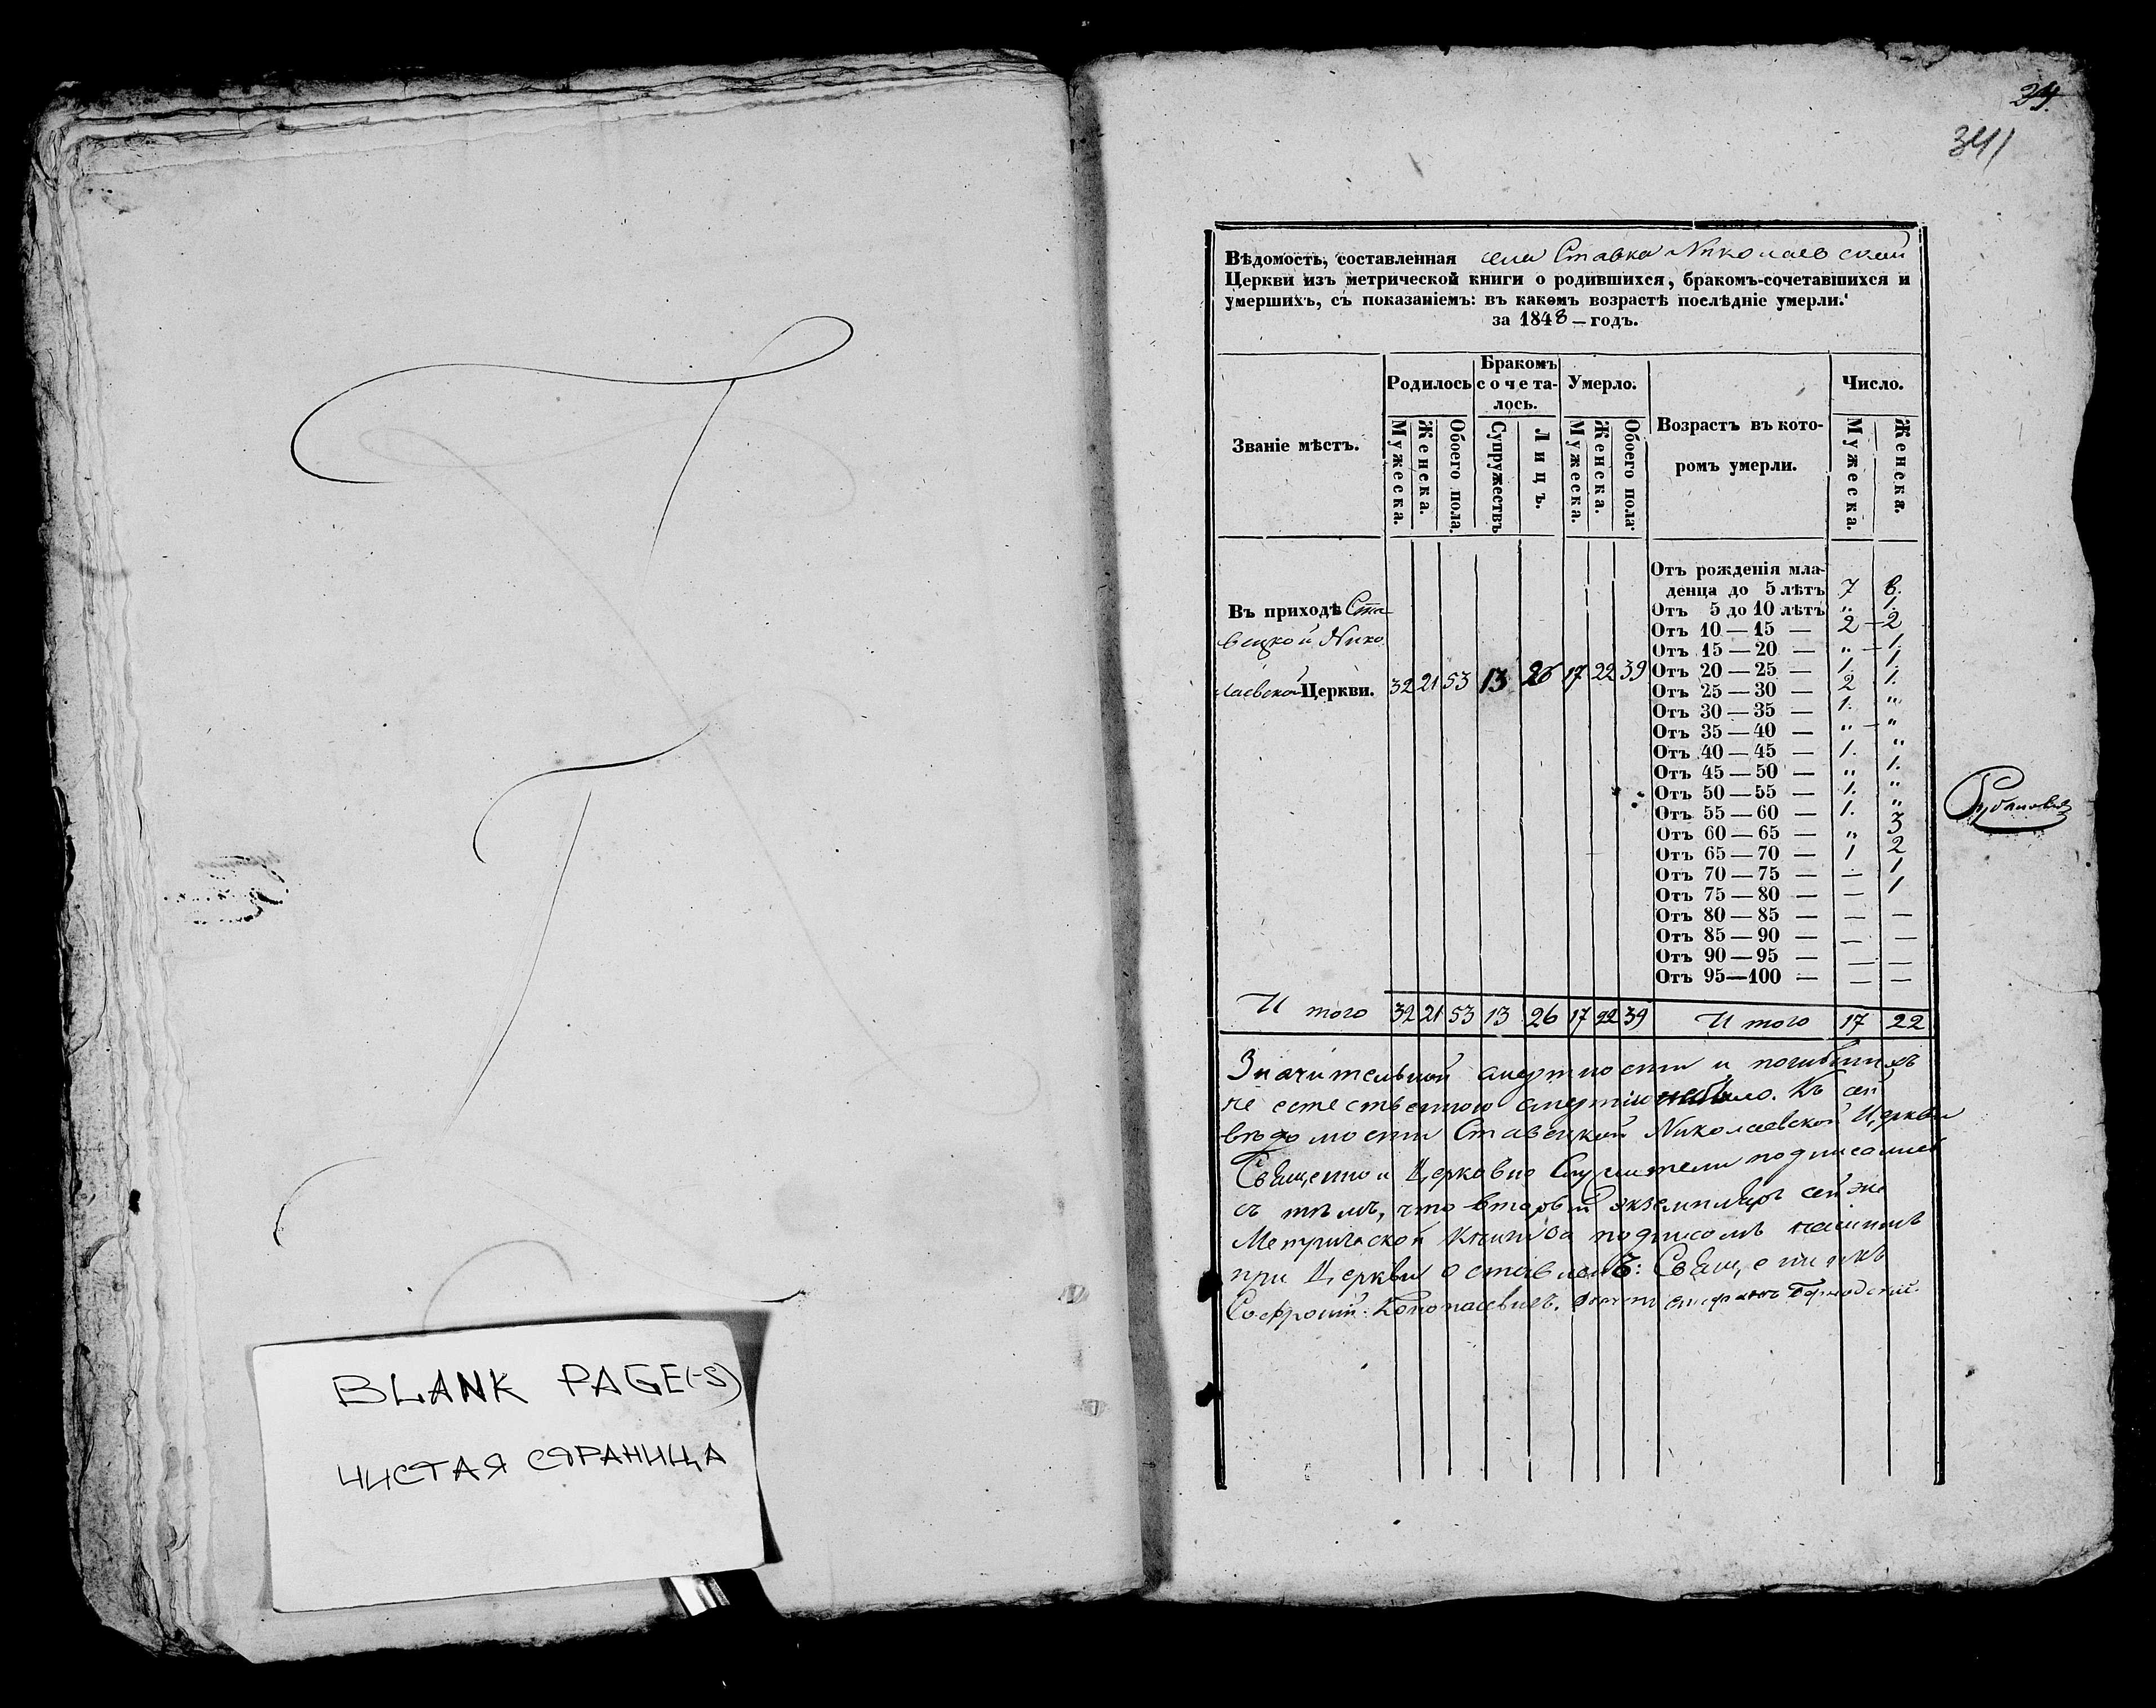 BLANK PAGE(-S)
ЧИСТАЯ СТРАНИЦА
29.
341
Вѣдомость, составленная села Ставка Николаевской
Церкви изъ метрической книги о родившихся, бракомъ-сочетавшихся и
умершихъ, съ показаніемъ: въ какомъ возрастѣ послѣдніе умерли.
за 1848 — годъ.
Званіе мѣстъ.
Родилось
Бракомъ
сочета-
лось.
Умерло.
Возрастъ въ кото-
ромъ умерли.
Число.
Мужеска.
Женска.
Обоего пола.
Супружествъ
Лицъ.
Мужеска.
Женска.
Обоего пола
Мужеска.
Женска.
Въ приходѣ Ста
вецкой Нико
лаевской Церкви. 32 21 53 13 26 17 22 39
Отъ рожденія мла-
денца до 5 лѣтъ 7 8.
Отъ 5 до 10 лѣтъ „ 1.
Отъ 10 — 15 — 2 — 2
Отъ 15 — 20 — „ — 1.
Отъ 20 — 25 — 1. 1.
Отъ 25 — 30 — 2 1.
Отъ 30 — 35 — 1. „
Отъ 35 — 40 — „ — „
Отъ 40 — 45 — 1. „
Отъ 45 — 50 — „ 1.
Отъ 50 — 55 — 1. „
Отъ 55 — 60 — 1. „
Отъ 60 — 65 — „ 3
Отъ 65 — 70 — 1 2
Отъ 70 — 75 — — 1
Отъ 75 — 80 — — 1
Отъ 80 — 85 — — —
Отъ 85 — 90 — — —
Отъ 90 — 95 — — —
Отъ 95—100 — — —
И того 32 21 53 13 26 17 22 39 И того 17 22
Значительной смертности и погибшихъ
не естественною смертію небыло. Къ сей
вѣдомости Ставецкой Николаевской Церкви
Священно и Церковно Служители подписались
съ тѣмъ, что вторый экземпляръ сей же
Метрической Книги за подписомъ нашимъ
при Церкви оставленъ: Священникъ
Софроній Конопасевичъ.